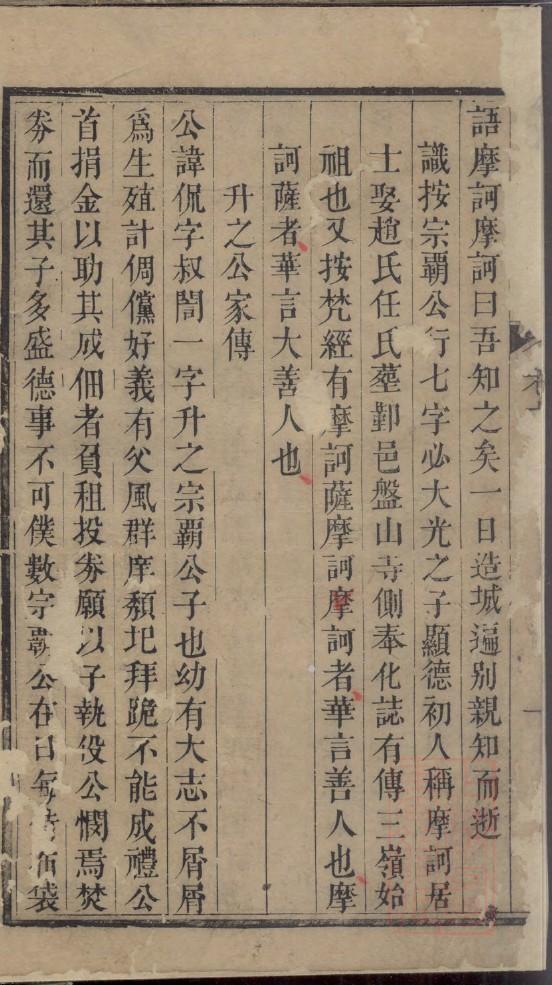 語摩訶摩訶曰吾知之矣一日造城遍别親知而逝
識按宗霸公行七字必大光之子顯德初人稱摩訶居
士娶趙氏任氏墓鄞邑盤山寺側奉化誌有傳三嶺始
祖也又按梵經有摩訶薩摩訶者華言善人也摩
訶薩者華言大善人也
升之公家傳
公諱侃字叔誾一字升之宗覇公子也幼有大志不屑屑
爲生殖計倜儻好義有父風群庠頽圯拜跪不能成禮公
首捐金以助其成佃者負租投劵願以子執役公憫焉焚
劵而還其子多盛德事不可僕數宗覇公在日每 布袋